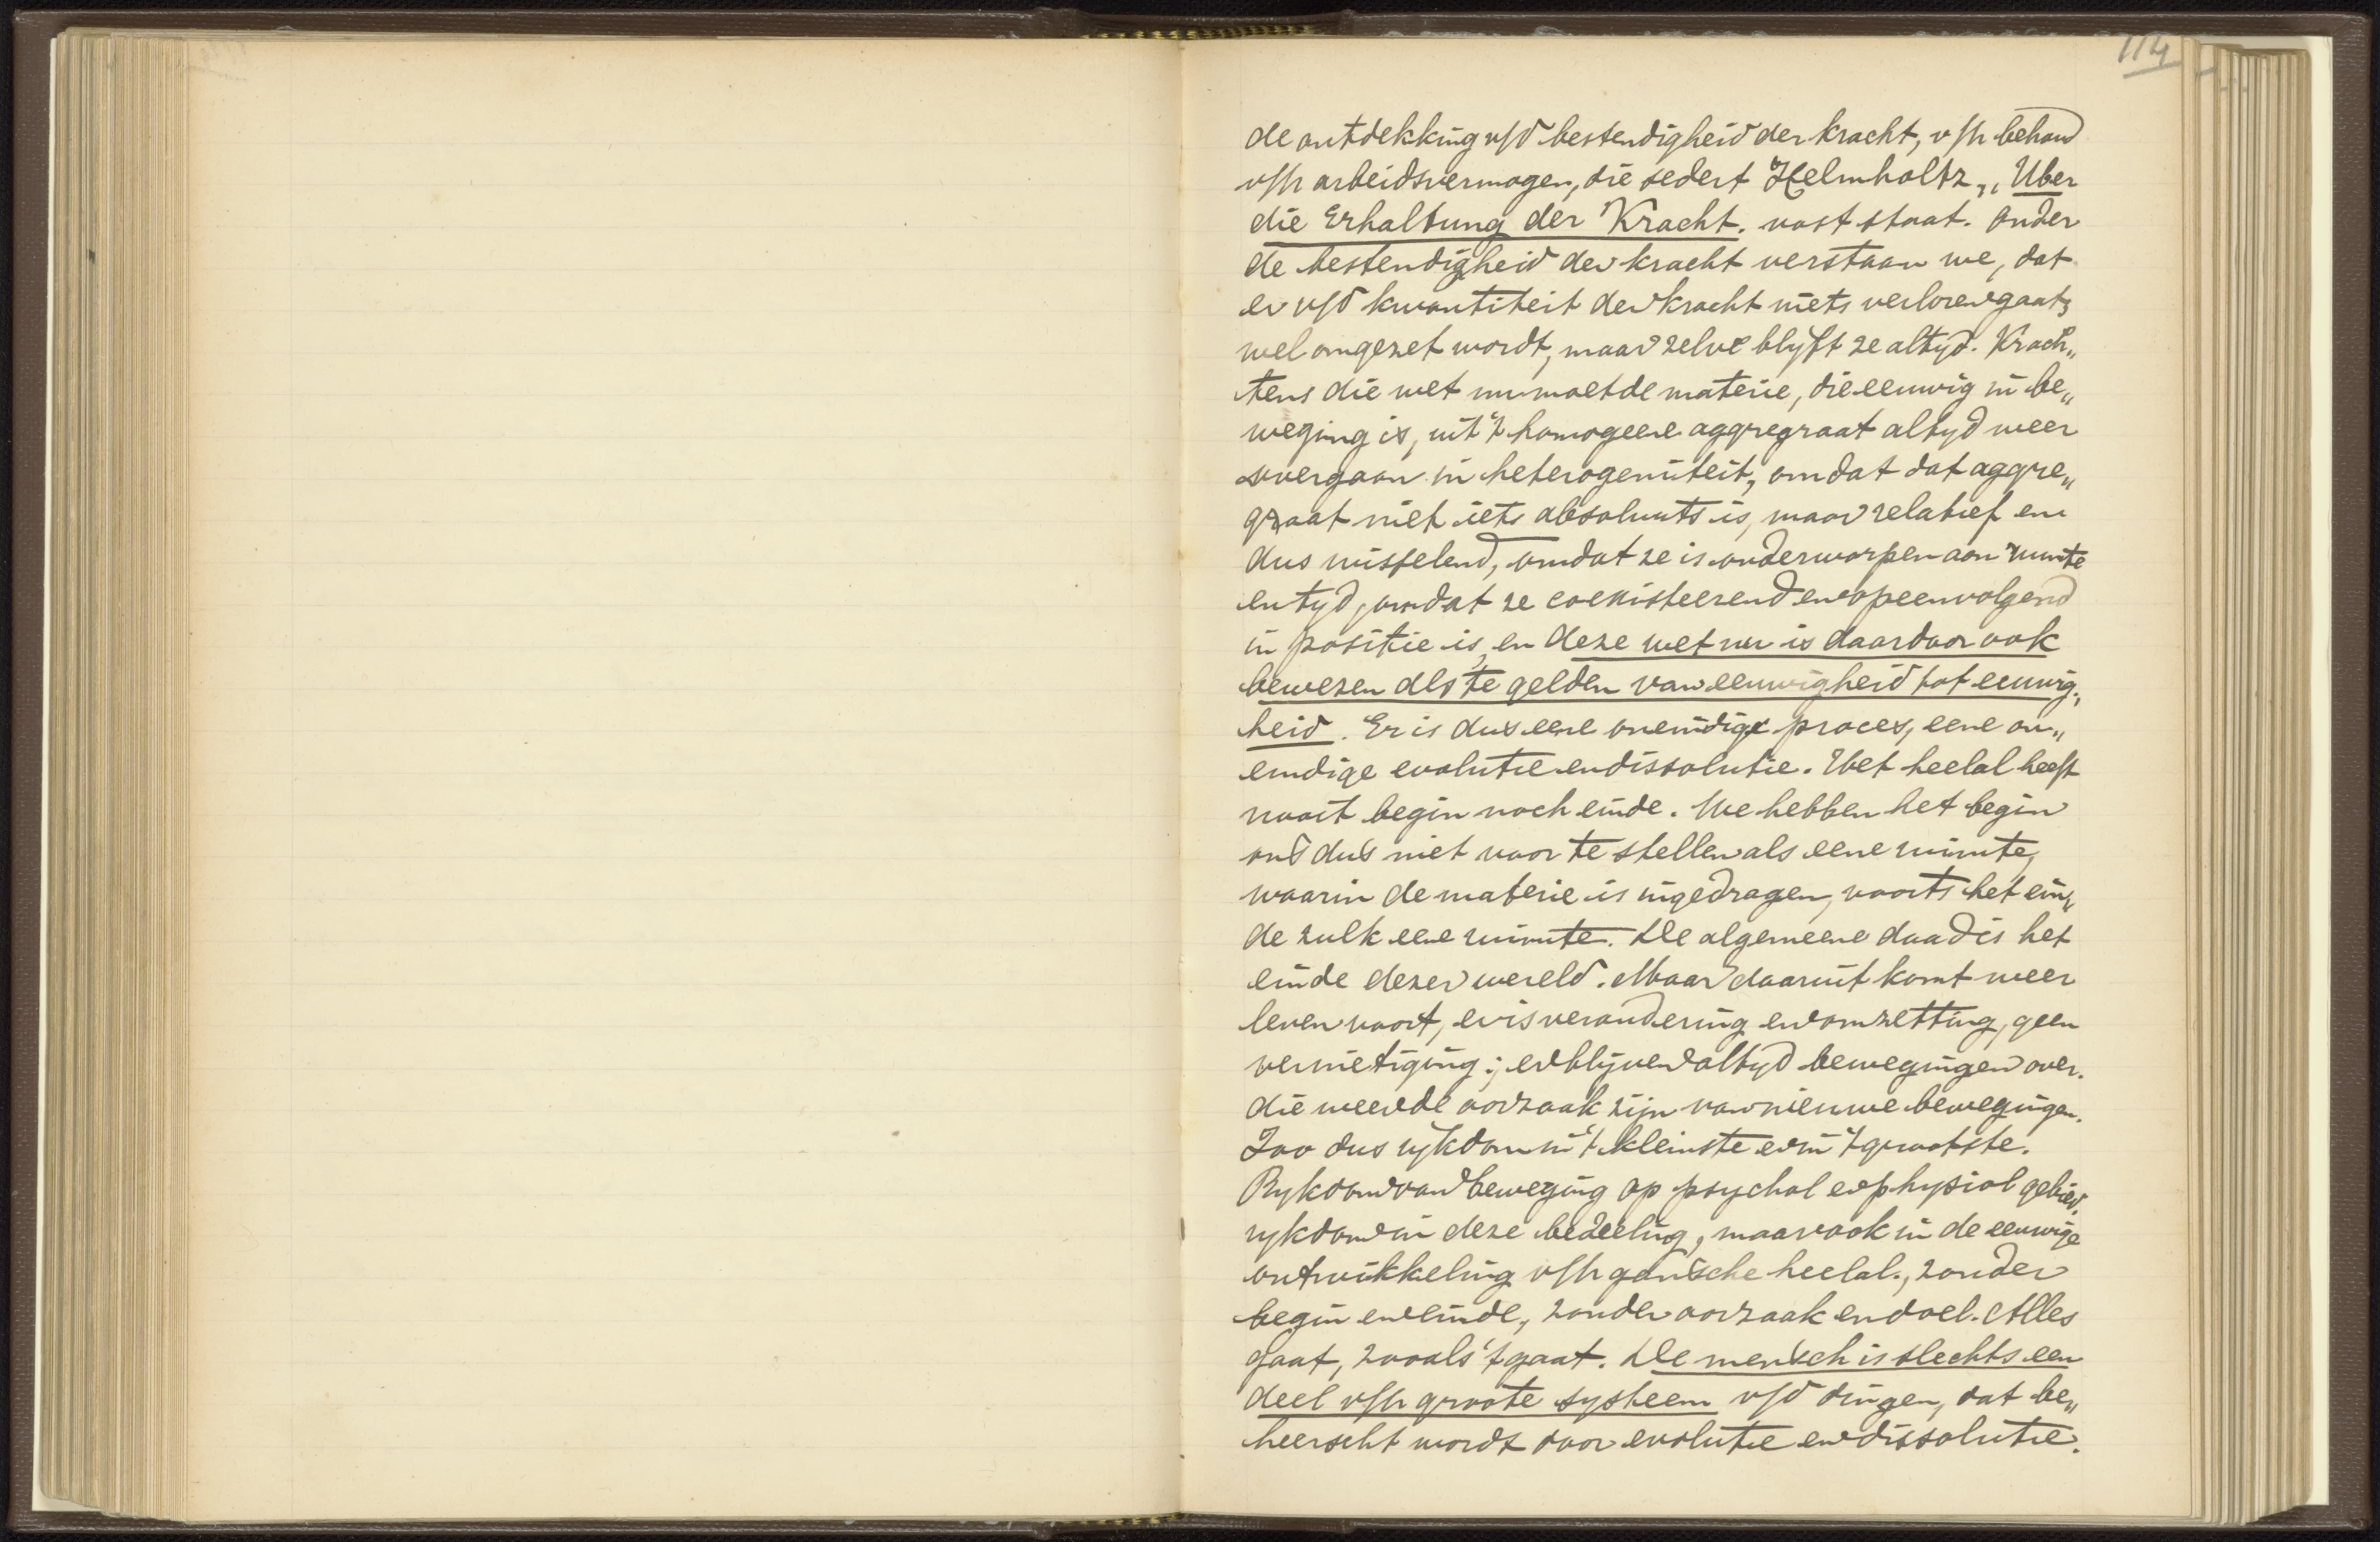 114
de ontdekking v/d bestendigheid der kracht, v/h behoud
v/h arbeidsvermogen, die sedert Helmholtz „Uber
die Erhaltung der Kracht. vast staat. Onder
de bestendigheid der kracht verstaan we, dat
er v/d kwantiteit der kracht niets verloren gaat,
wel omgezet wordt, maar zelve blyft ze altyd. Krach„
tens die wet nu moet de materie, die eeuwig in be„
weging is, uit 't homogeene aggregraat altyd weer
overgaan in heterogeniteit, omdat dat aggre„
graat niet iets absoluuts is, maar relatief en
dus wisselend, omdat ze is onderworpen aan ruimte
en tyd, omdat ze coexisteerend en opeenvolgend
in positie is, en deze wet nu is daardoor ook
bewezen als te gelden van eeuwigheid tot eeuwig„
heid. Er is dus eene oneindige proces, eene on„
eindige evolutie en dissolutie. Het heelal heeft
nooit begin noch einde. We hebben het begin
ons dus niet voor te stellen als eene ruimte,
waarin de materie is ingedragen, voorts het ein„
de zulk eene ruimte. De algemeene dood is het
einde dezer wereld. Maar daaruit komt weer
leven voort, er is verandering en omzetting, geen
vernietiging; er blijven altyd bewegingen over.
die weer de oorzaak zijn van nieuwe bewegingen.
Zoo dus rykdom in 't kleinste en in 't grootste.
Rykdom van beweging op psychol en physiol gebied,
rykdom in deze bedeeling, maar ook in de eeuwige
ontwikkeling v/h gansche heelal., zonder
begin en einde, zonder oorzaak en doel. Alles
gaat, zooals 't gaat. De mensch is slechts een
deel v/h groote systeem v/d dingen, dat be„
heerscht wordt door evolutie en dissolutie.